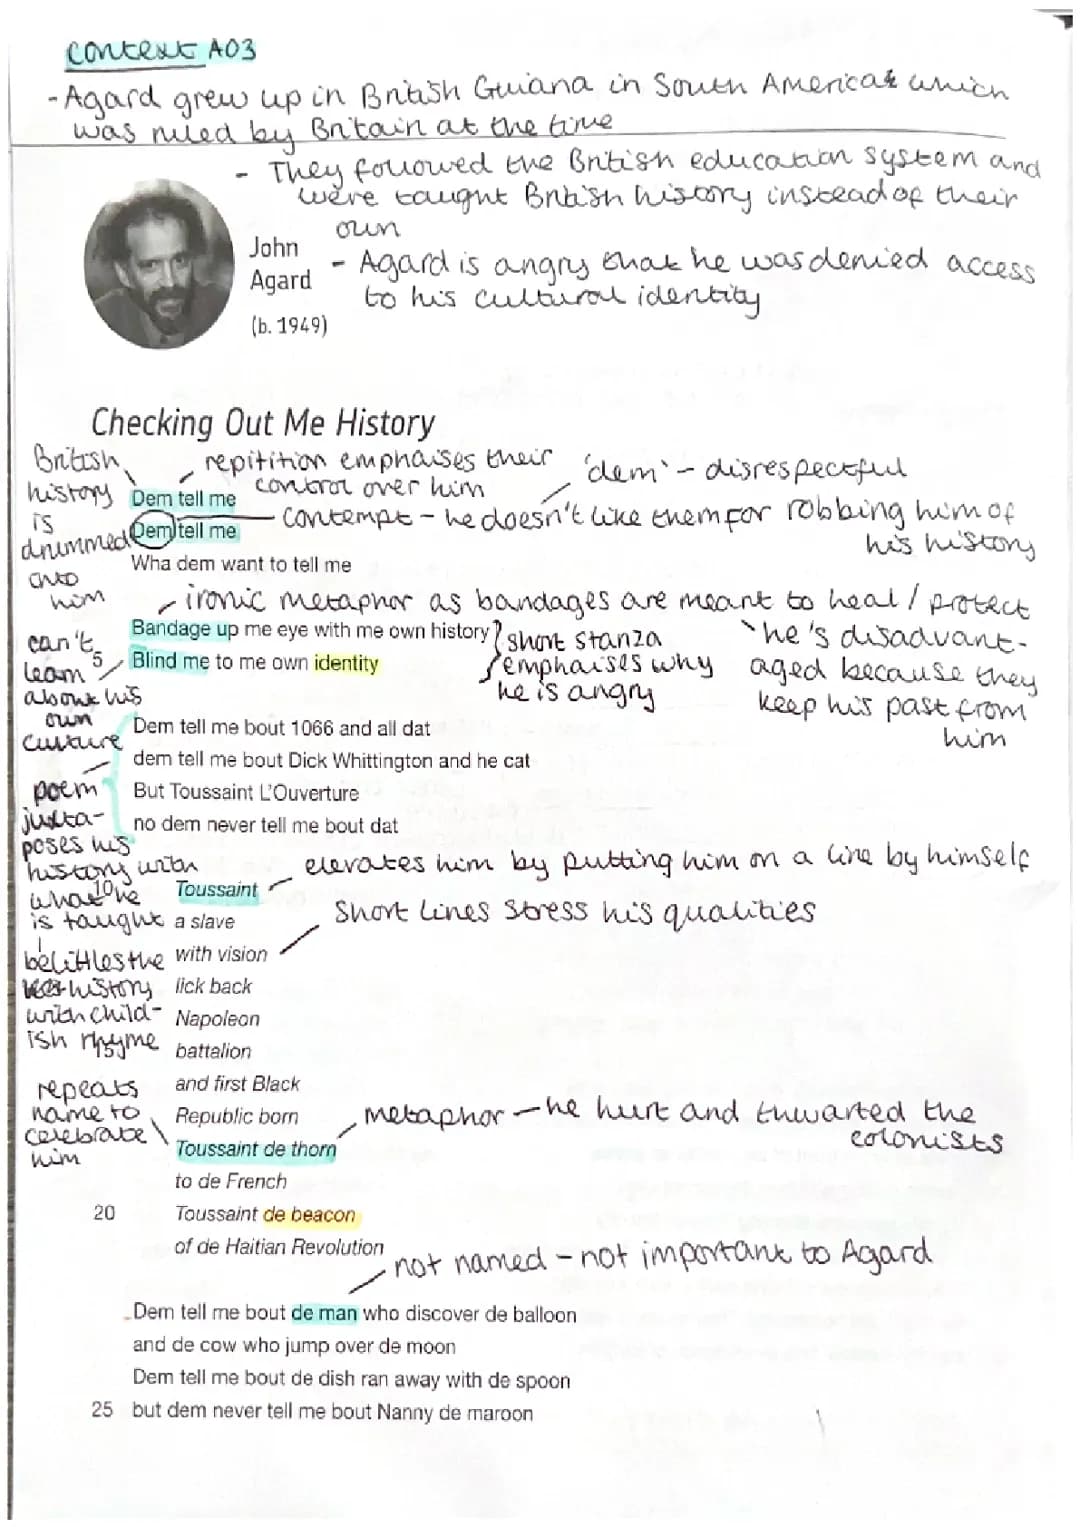 Context AO3
- Agard grew up in British Guiana in South America & which
was ruled by Britain at the time
- They followed the British education system and
were taught British history instead of their
own
- Agard is angry that he was denied access
to his cultural identity
John
Agard
(b. 1949)
Checking Out Me History
British
history
is
drummed
into
him
repitition emphaises their
control over him
'dem' - disrespectful
Dem tell me
Dem tell me
contempt - he doesn't like them for robbing him of
his history
Wha dem want to tell me
ironic metaphor as bandages are meant to heal / protect
he's disadvant-
aged because they
keep his past from
him
Bandage up me eye with me own history
5 Blind me to me own identity
short stanza
emphaises why
he is angry
can't
learn
about his
own
culture
Dem tell me bout 1066 and all dat
dem tell me bout Dick Whittington and he cat
But Toussaint L'Ouverture
no dem never tell me bout dat
poem
juxta-
poses his
history with
what he
is taught
belittles the
history
with child-
ish rhyme
elevates him by putting him on a line by himself
10 Toussaint
a slave
with vision
Short lines stress his qualities
lick back
Napoleon
15 battalion
and first Black
Republic born
repeats
name to
celebrate
him
metaphor - he hurt and thwarted the
colonists
Toussaint de thorn
to de French
20 Toussaint de beacon
of de Haitian Revolution
not named - not important to Agard
Dem tell me bout de man who discover de balloon
and de cow who jump over de moon
Dem tell me bout de dish ran away with de spoon
25 but dem never tell me bout Nanny de maroon